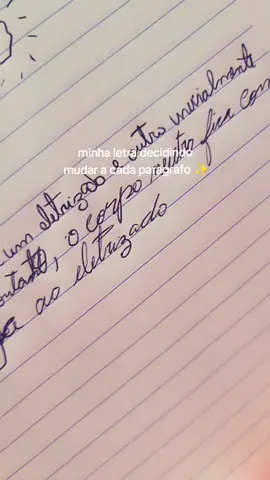 minha letra decidindo
mudar a cada parágrafo ✨
um eletrizado e outro inicialmente
o corpo neutro fica com
ao eletrizado